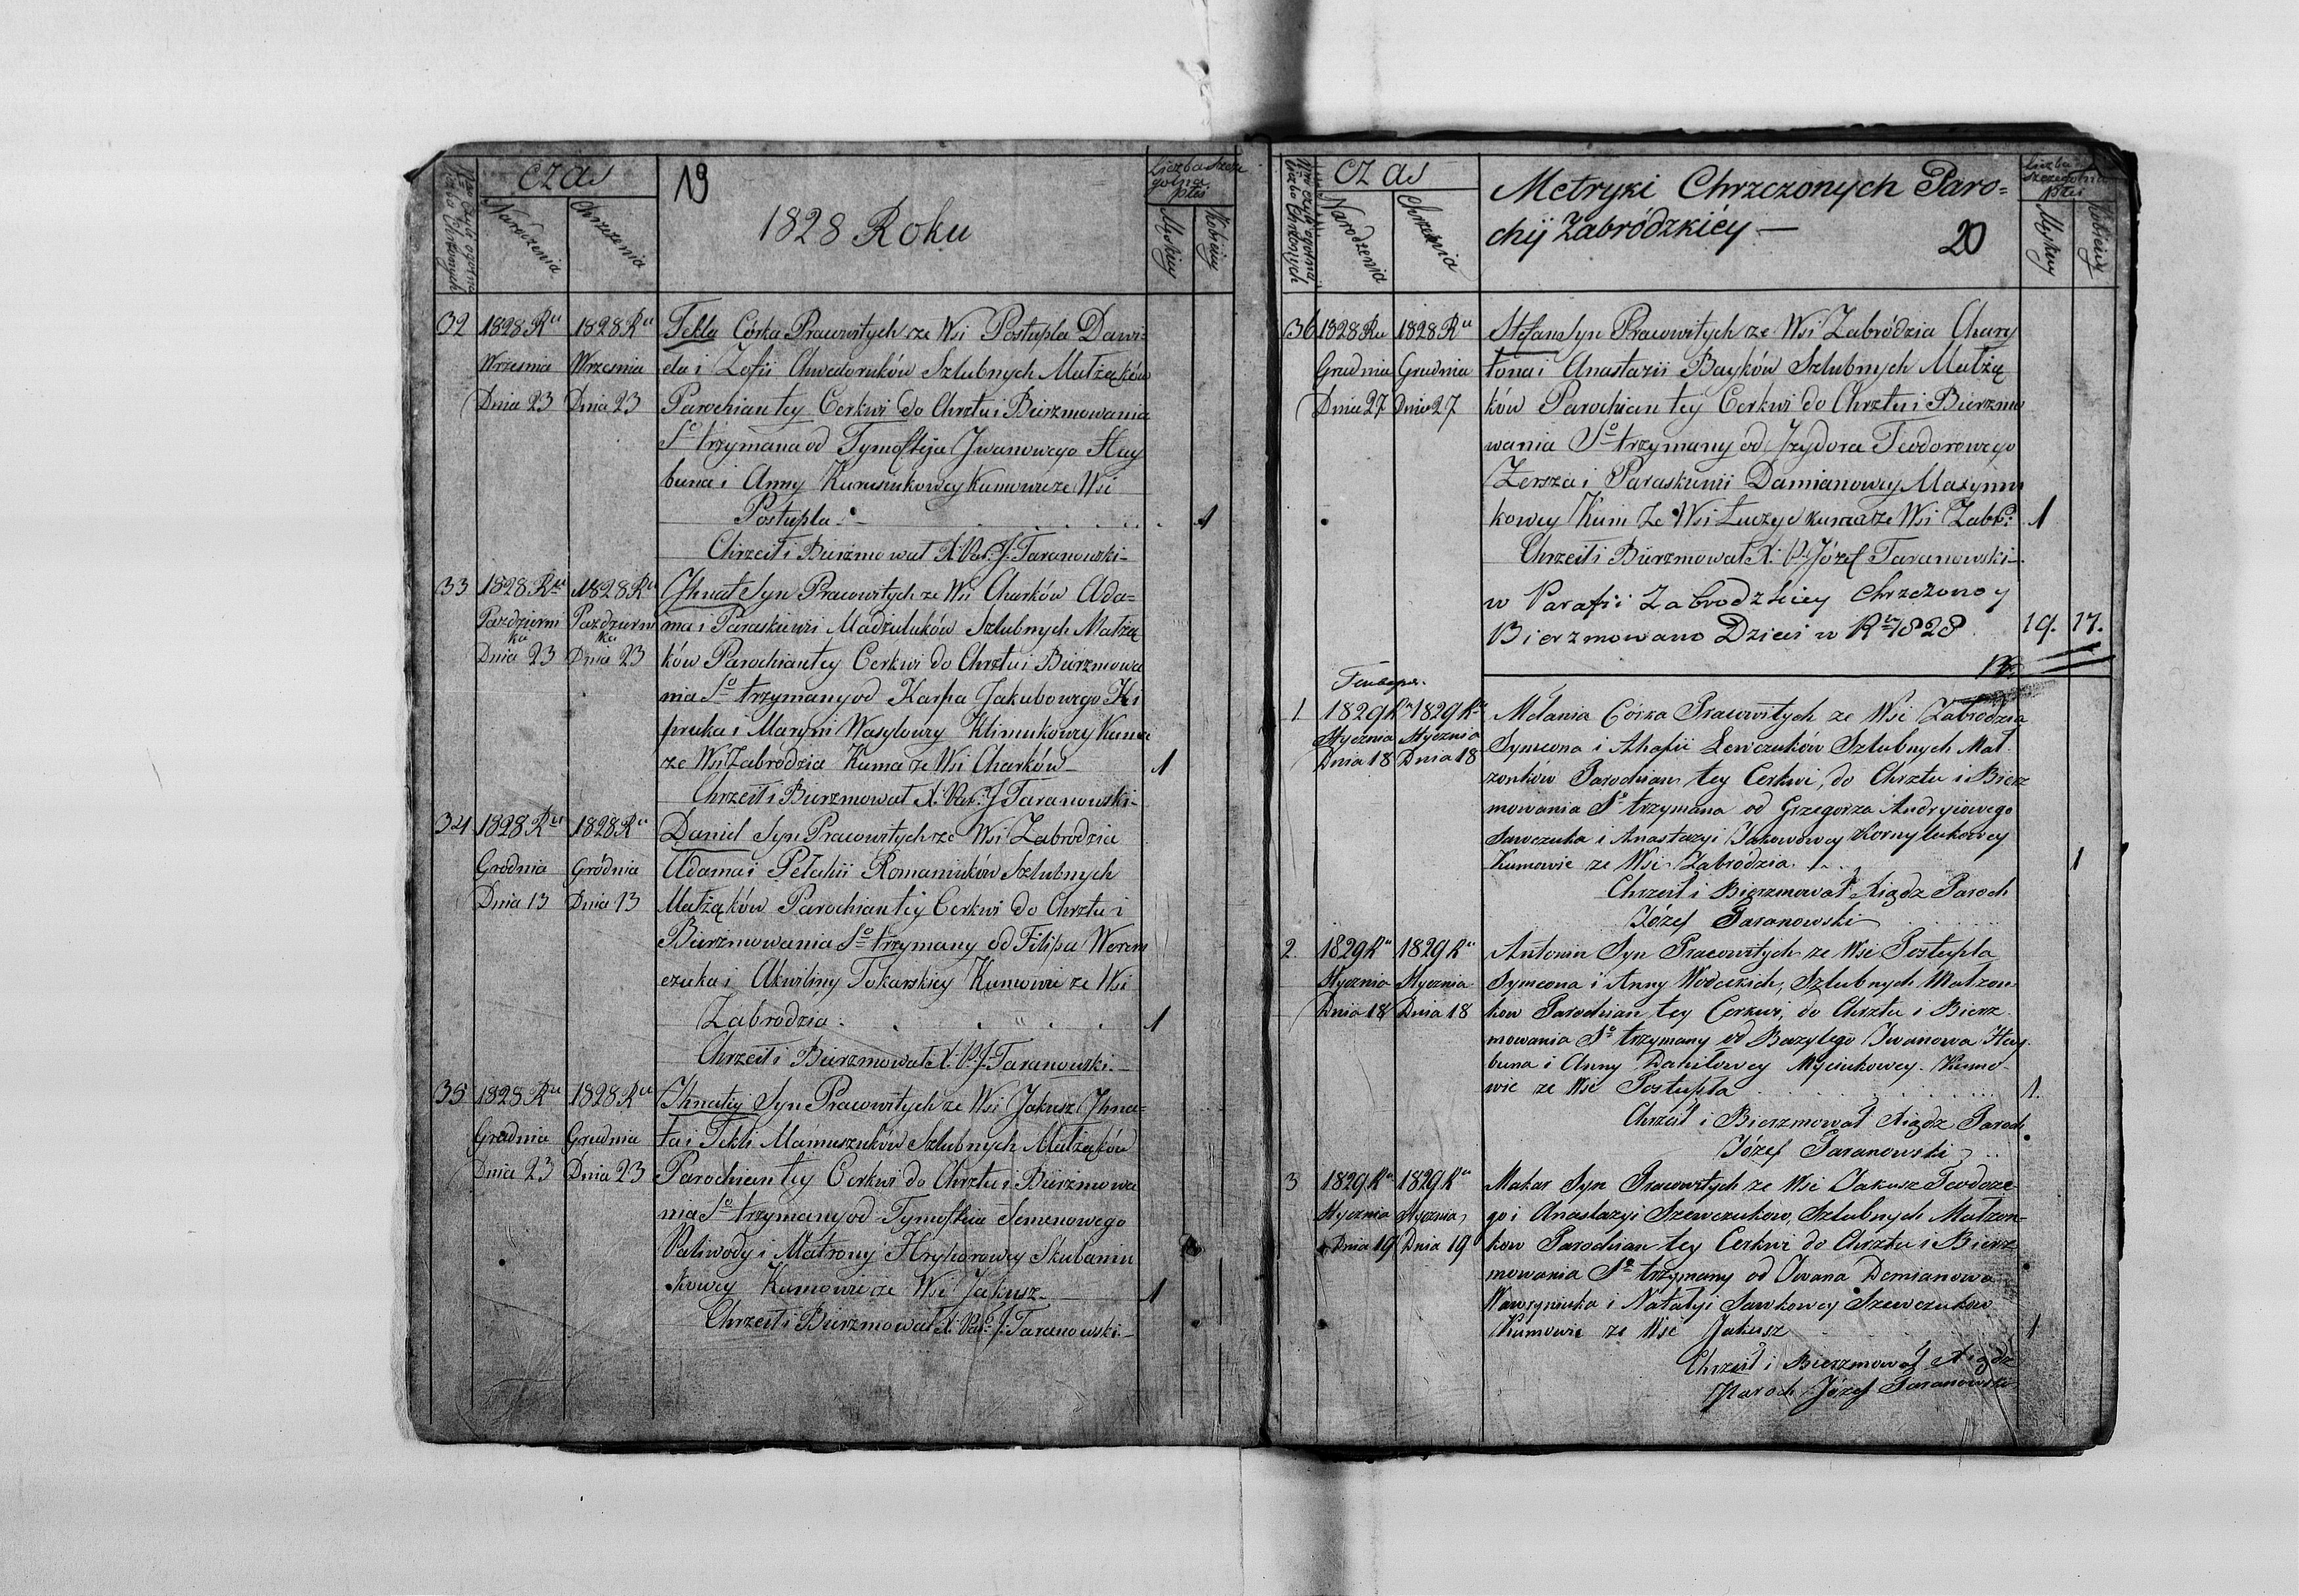 CZAS
19
Liczba szcze
gólna
płci
Narodzenia
Chrzczenia
Męskiey
Kobiecey
1828 Roku
32
1828 Ru 1828 Ru
Września Września
Dnia 23 Dnia 23
Tekla Córka Pracowitych ze Wsi Postupla Dawi-
da i Zofii Chwedoruków Szlubnych Małżąków
Parochian tey Cerkwi do Chrztu i Bierzmowania
So trzymana od Tymofteja Jwanowego Hay
buna i Anny Kumowie ze Wsi
Postupla
1
Chrzcił i Bierzmował X. Par: J: Taranowski
33
1828 Ru 1828 Ru
Październi Październi
ka ka
Dnia 23 Dnia 23
Jhnat Syn Pracowitych ze Wsi Charków Ada-
ma i Paraskiewii Madzuluków Szlubnych Małżą
ków Parochian tey Cerkwi do Chrztu i Bierzmowa
nia So trzymany od Karpa Jakubowego Ki
pruka i Maryni Wasylowey Klimukowey Kum
ze Wsi Zabrodzia Kuma ze Wsi Charków
1
Chrzcił i Bierzmował X: Par: J: Taranowski
34
1828 Ru 1828 Ru
Grodnia Gródnia
Dnia 13 Dnia 13
Daniel Syn Pracowitych ze Wsi Zabrodzia
Adama i Pełahii Romaniuków Szlubnych
Małżąków Parochian tey Cerkwi do Chrztu i
Bierzmowania So trzymany od Filipa Worem
czuka i Akwiliny Tokarskiey Kumowie ze Wsi
Zabrodzia
1
Chrzcił i Bierzmował X: P: J: Taranowski
35
1828 Ru 1828 Ru
Grudnia Grudnia
Dnia 23 Dnia 23
Jhnatiy Syn Pracowitych ze Wsi Jakusz Jhna-
ta i Tekli Mamuszuków Szlubnych Małżąków
Parochian tey Cerkwi do Chrztu i Bierzmowa
nia So trzymany od Tymofteia Semenowego
Paliwody i Matrony Hryhorowey Skubaniu
kowey Kumowie ze Wsi Jakusz
1
Chrzcił i Bierzmował X: Par: J: Taranowski
CZAS
Narodzenia
Chrzczenia
Metryki Chrzczonych Paro-
chij Zabródzkiéy
20
Liczba
szczególna
płci
Męskiey
Kobiecey
36
1828 Ru 1828 Ru
Grudnia Grudnia
Dnia 27 Dnia 27
Stefan Syn Pracowitych ze Wsi Zabródzia Chary
tona i Anastazii Bayków Szlubnych Małżą
ków Parochian tey Cerkwi do Chrztu i Bierzmo
wania So trzymany od Jzydora Teodorowego
Zersza i Paraskewii Damianowey Maxymu
kowey Kum ze Wsi Łuczyc kuma ze Wsi Zabr:
1
Chrzcił i Bierzmował X. P. Józef Taranowski
w Parafii Zabrodzkiey Chrzczono y
Bierzmowano Dzieci w Ru 1828
19. 17.
1
1829 Ru 1829 Ru
Stycznia Stycznia
Dnia 18 Dnia 18
Mełania Córka Pracowitych ze Wsi Zabrodzia
Symeona i Ahafii Lewczuków Szlubnych Mał-
żonków Parochian tey Cerkwi, do Chrztu i Bierz
mowania So trzymana od Grzegorza Andryiowego
Sawczuka i Anastazyi Jakowowey Kornylukowey
Kumowie ze Wsi Zabrodzia
1
Chrzcił i Bierzmował Xiądz Paroch
Józef Taranowski
2.
1829 Ru 1829 Ru
Stycznia Stycznia
Dnia 18 Dnia 18
Antonin Syn Pracowitych ze Wsi Postupla
Symeona i Anny Szlubnych Małżon
kow Parochian tey Cerkwi, do Chrztu i Bierz
mowania So trzymany od Bazylego Jwanowa Hay
buna i Anny Daniłowey Kumo-
wie ze Wsi Postupla
1.
Chrzcił i Bierzmował Xiądz Paroch
Józef Taranowski
3
1829 Ru 1829 Ru
Stycznia Stycznia
Dnia 19 Dnia 19
Makar Syn Pracowitych ze Wsi Jakusz Teodore-
go i Anastazyi Szewczukow, Szlubnych Małżon-
kow Parochian tey Cerkwi do Chrztu i Bierz
mowania So trzymany od Jwana Demianowa
Wawryniuka i Natalyi Sawkowey Szewczukow
Kumowie ze Wsi Jakusz
1
Chrzcił i Bierzmował Xiądz
Paroch Józef Taranowski